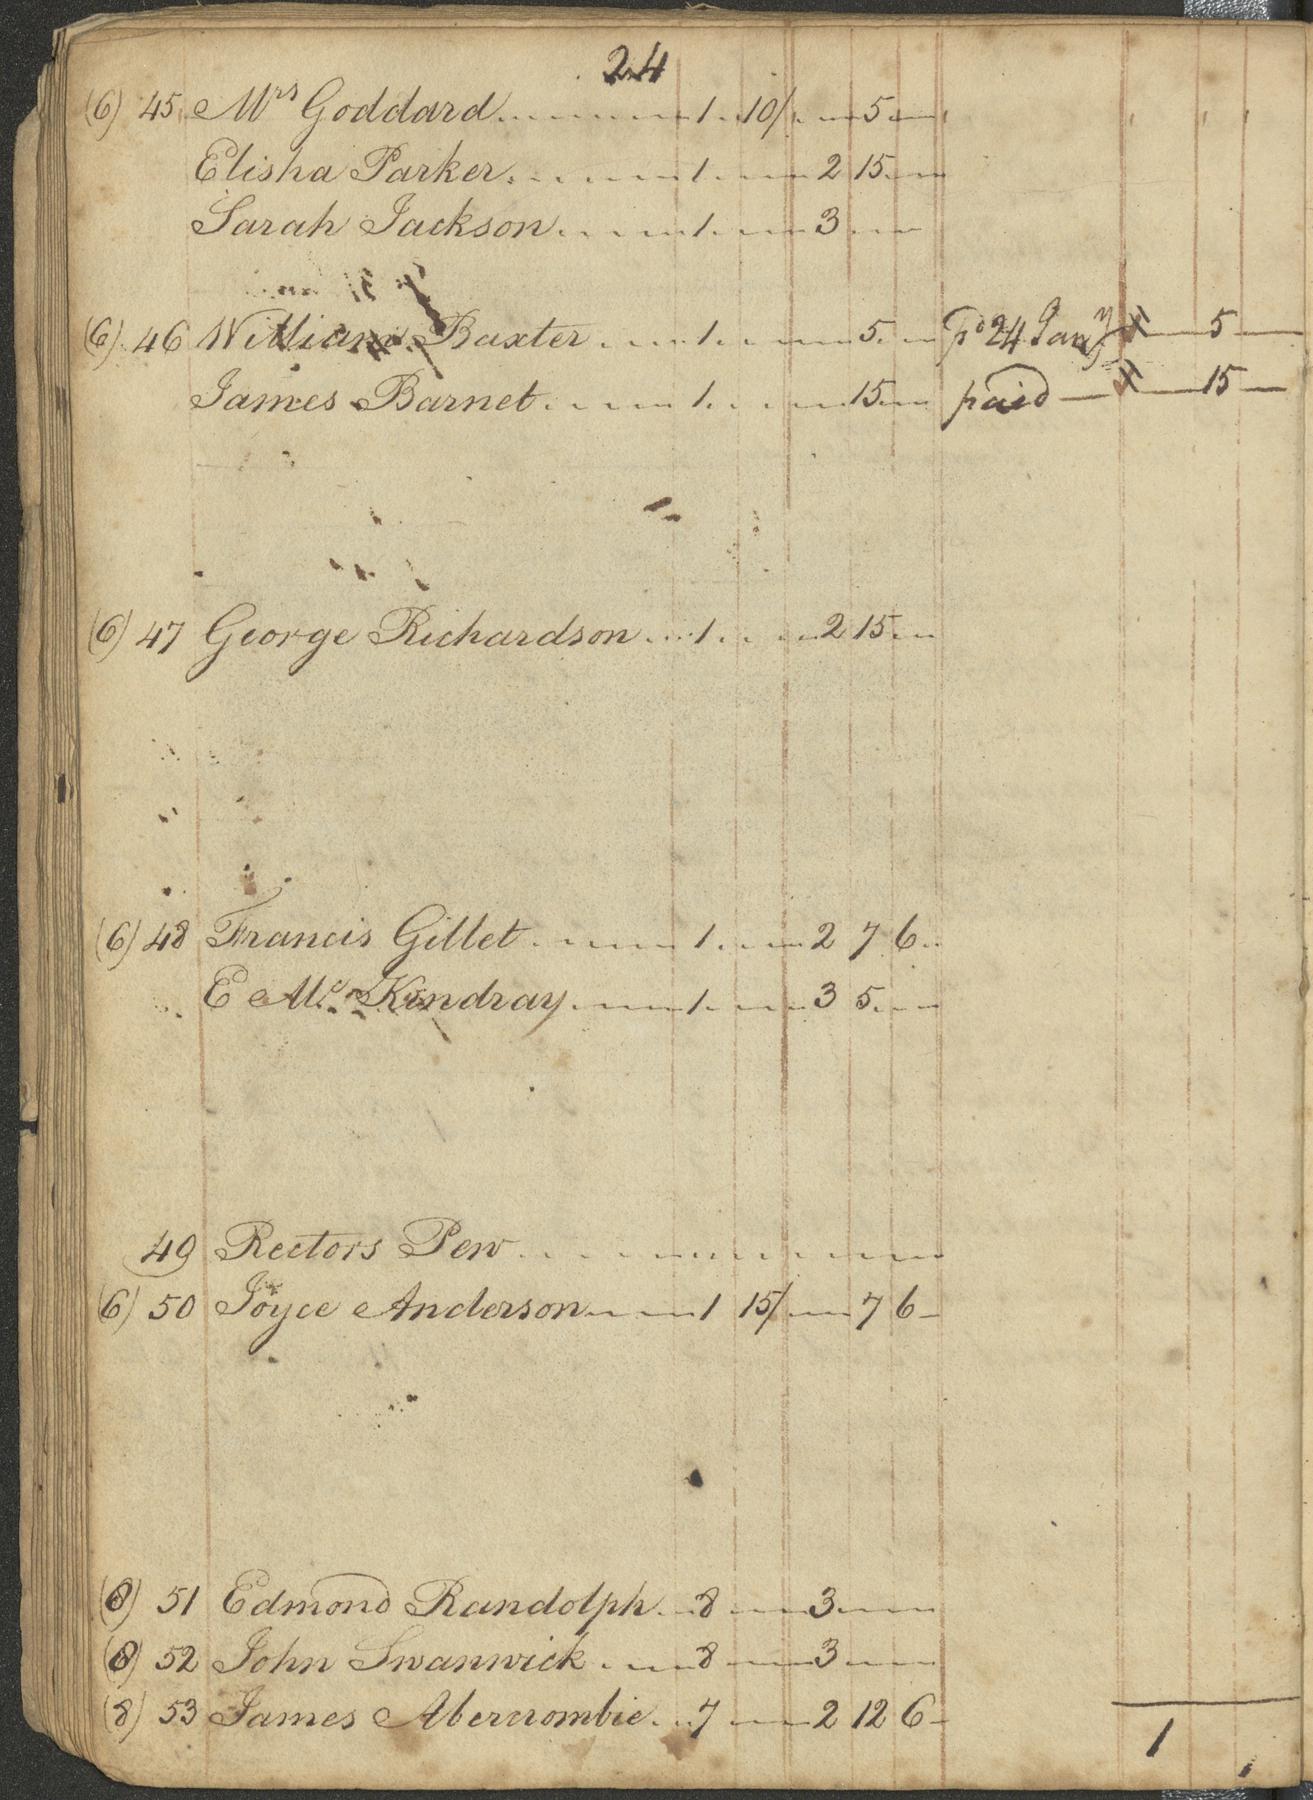 24
(6) 45 Mrs Goddard 1 10/ 5
Elisha Parker 1 2 15
Sarah Jackson 1 3
(6) 46 William Baxter 1 5 pd 24 Jany 5
James Barnet 1 15 paid 15
(6) 47 George Richardson 1 2 15
(6) 48 Francis Gillet 1 2 7 6
E McKindray 1 3 5
49 Rectors Pew
(6) 50 Joyce Anderson 1 15/ 7 6
(8) 51 Edmond Randolph 8 3
(8) 52 John Swanwick 8 3
(8) 53 James Abercrombie 7 2 12 6
1